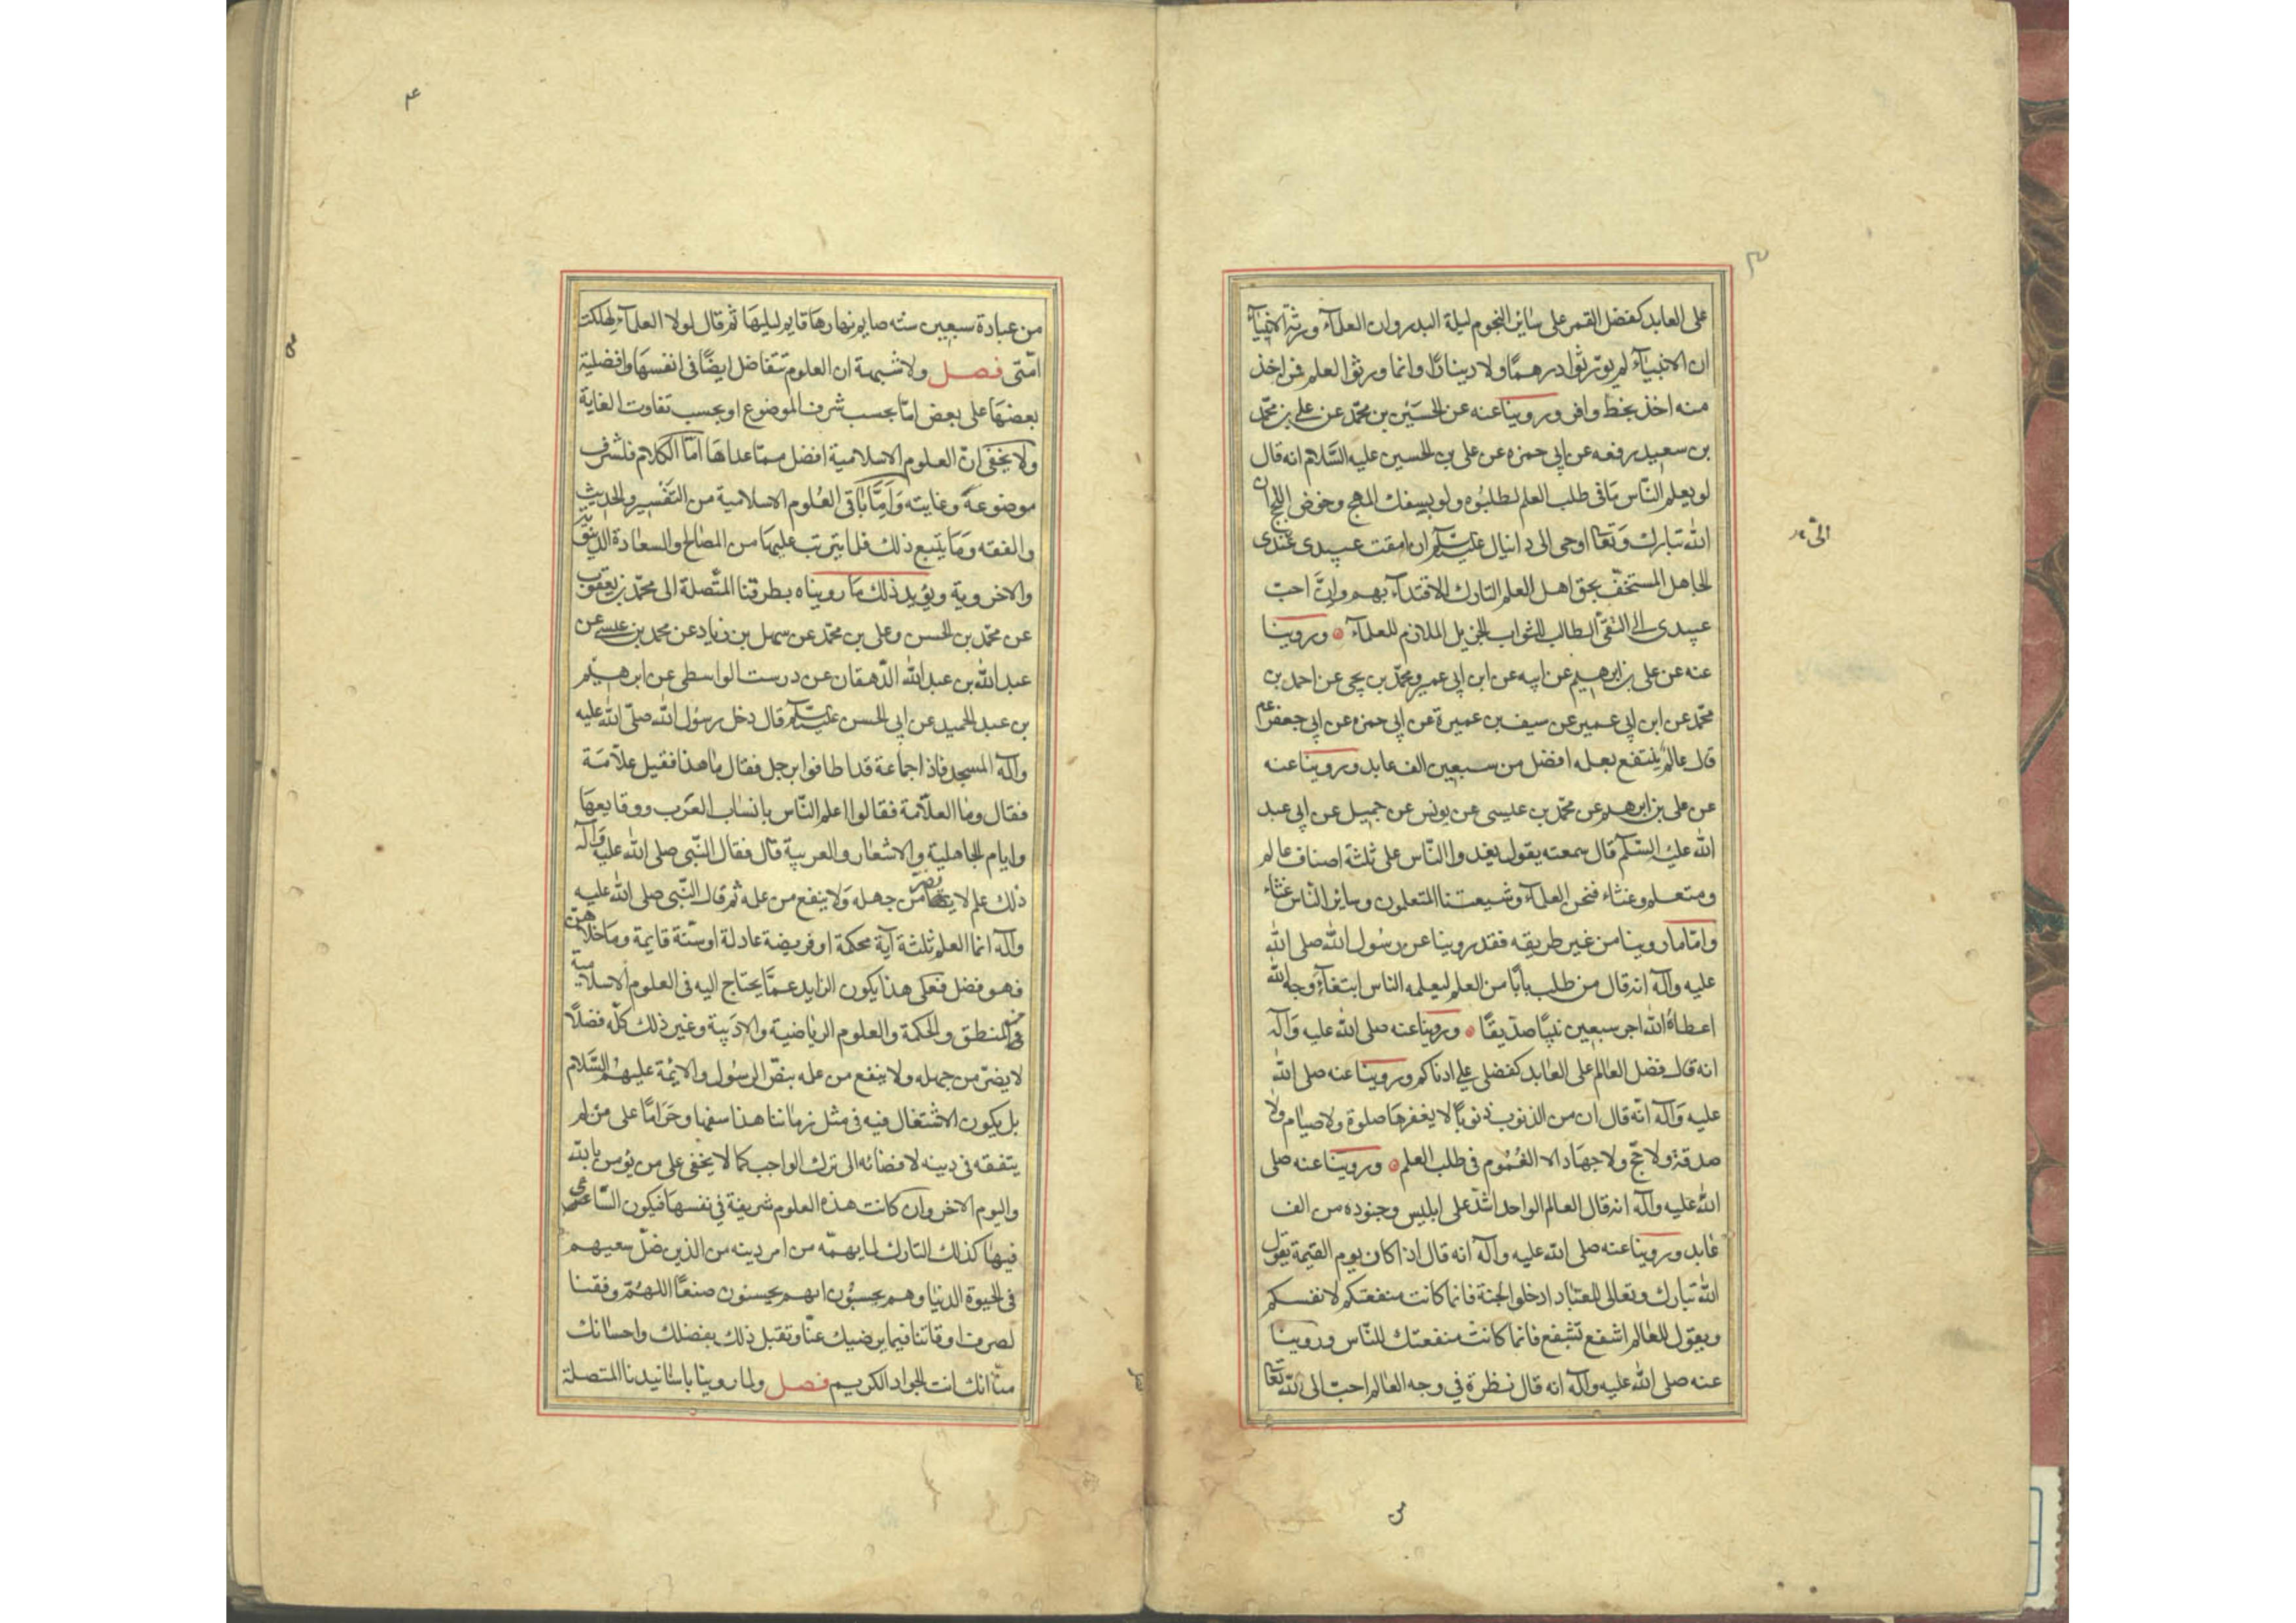 على العابد كفضل القمر على ساير النجوم ليلة البدر وان العلمآء ورثة الانبيآء
ان الانبيآء لم يورّثوا درهمًا ولا دينارًا وانما ورثوا العلم فمن اخذ
منه اخذ بحظ وافر وروينا عنه عن الحسين بن محمّد عن علي بن محمّد
بن سعيد رفعه عن ابي حمزه عن على بن الحسين عليه السَّلام انه قال
لو يعلم النّاس مَا فى طلب العلم لطلبُوه ولو بسفك المهج وخوض اللجج ان
الله تبارك وتَعَالى اوحى الى دانيال عليه السلام ان امقت عبيدى عندى
الجاهل المستخفّ بحق اهل العلم التارك الاقتدآء بهم وانَّ احبّ
عبيدى الىَّ التقىّ الطالب للثواب الجزيل الملازم للعلمآء وروينا
عنه عن على بن ابرهيم عن ابيه عن ابن ابي عمير ومحمّد بن يحيى عن احمد بن
محمّد عن ابن ابي عمير عن سيف بن عميرة عن ابي حمزه عن ابي جعفر ع
قال عالمٌ ينتفع بعلمه افضل من سبعين الف عابد وروينا عنه
عن على بن ابرهيم عن محمّد بن عيسى عن يونس عن جميل عن ابي عبد
الله عليه السّلم قال سمعته يقول يغدوا النّاس على ثلثة اصناف عالم
ومتعلم وغثاء فنحن العلمآء وشيعتنا المتعلمون وساير النّاس غثاء
وامّا ما روينا من غير طريقه فقد روينا عن رسُول الله صلى الله
عليه وآله انه قال من طلب بابًا من العلم ليعلمه الناس ابتغآء وجه الله
اعطاهُ الله اجر سبعين نبيًا صدّيقًا وروينا عنه صلى الله عليه وَآله
انه قال فضل العالم على العابد كفضلى علي ادناكم وروينا عنه صلى الله
عليه وَآله انّه قال ان من الذنوب ذنوبًا لا يغفرهَا صلوة ولا صيام ولا
صدقة ولا حجّ ولا جهاد الا الغمُوم فى طلب العلم وروينا عنه صلى
اللهُ عليه وآله انه قال العالم الواحد اشدّ على ابليس وجنوده من الف
عابد وروينا عنه صلى الله عليه وآله انه قال اذا كان يوم القيمة يقول
الله تبارك وتعالى للعبّاد ادخلوا الجنة فانما كانت منفعتكم لانفسكم
ويقول للعالم اشفع تشفع فانما كانت منفعتك للنّاس وروينا
عنه صلى الله عليه وآله انه قال نظرة في وجه العالم احبّ الى الله تعالى
الىّ
من عبادة سبعين سنه صايم نهارهَا قايم ليلهَا ثم قال لولا العلمآء لهلكت
امّتى فصل ولا شبهة ان العلوم تتفاضل ايضًا فى انفسهَا وافضلية
بعضهَا على بعض امّا بحسب شرف الموضوع او بحسب تفاوت الغاية
ولا يخفى انّ العلوم الاسلامية افضل ممّا عداهَا امّا الكلام فلشرف
موضوعهِ وغايته وَاَمَّا بَاقى العُلوم الاسلامية من التفسير والحديث
والفقه وَمَا يتبع ذلك فلما يترتب عليهَا من المصالح والسعادة الدينوية
والاخروية ويؤيد ذلك مَا رويناه بطرقنا المتّصلة الى محمّد بن يعقوب
عن محمّد بن الحسن وعلى بن محمّد عن سهل بن زياد عن محمد بن عيسى عن
عبد الله بن عبد الله الدّهقان عن درست الواسطى عن ابرهيم
بن عبد الحميد عن ابي الحسن عليه السلم قال دخل رسُول الله صلّى الله عليه
وآله المسجد فاذا جماعة قد اطافوا برجل فقال مَا هذا فقيل علاّمَة
فقال ومَا العلاّمة فقالوا اعلم النّاس بانسَاب العَرَب ووقايعهَا
وايام الجاهلية والاشعار والعربية قال فقال النّبى صلى الله عليه وَآله
ذلك علم لا يضرّ من جهله وَلا ينفع من علمه ثم قال النّبى صلى الله عليه
وآله انما العلم ثلثة آية محكمة او فريضة عادلة او سنّة قايمة ومَا خلاهنّ
فهو فضل فعلى هذا يكون الزايد عمَّا يحتاج اليه فى العلوم الاسلامية
فى المنطق والحكمة والعلوم الريَاضية والادَبية وغير ذلك كلّه فضلاً
لا يضرّ من جهله ولا ينفع من علمه بنصّ الرسُول والايمّة عليهمُ السَّلام
بل يكون الاشتغال فيه فى مثل زمَاننا هذا سفهًا وحَرَامًا على من لم
يتفقه فى دينه لافضائه الى ترك الواجب كما لا يخفى على من يؤمن بالله
واليوم الاخر وان كانت هذه العلوم شريفة في نفسهَا فيكون السّاعى
فيهَا كذلك التارك لما يهمّه من امر دينه من الذين ضلّ سعيهم
فى الحيوة الدنيَا وهم يحسبُون انهم يحسنون صنعًا اللهُمّ وفقنا
لصرف اوقاتنا فيما يرضيك عنّا وتقبل ذلك بفضلك واحسَانك
منّا انك انت الجواد الكريم فصل ولما روينا باسَانيدنا المتصلة